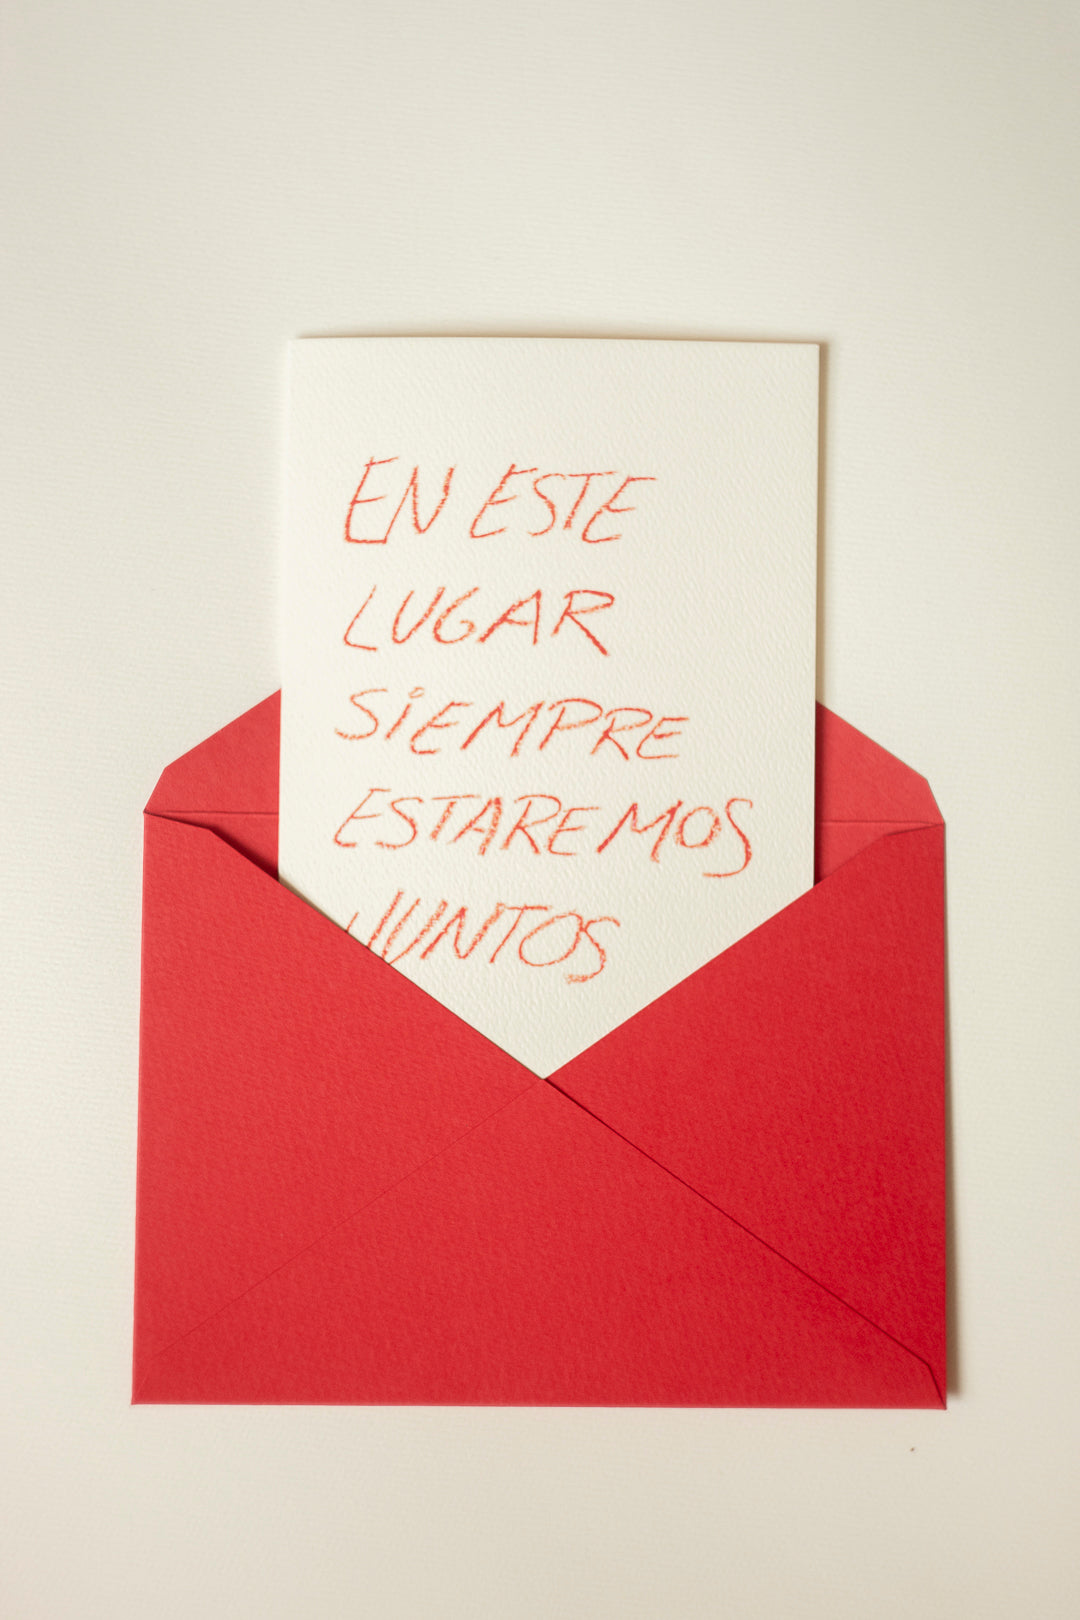 EN ESTE
LUGAR
SiEMPRE
ESTAREMOS
JUNTOS